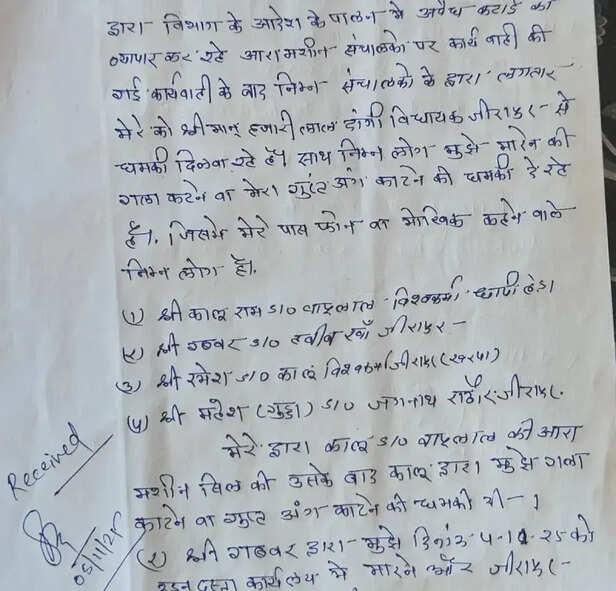 द्वारा विभाग के आदेश के पालन मे अवैध कटाई का
व्यापार कर रहे आरामशीन संचालको पर कार्यवाही की
गई कार्यवाही के बाद निम्न संचालको के द्वारा लगातार
मेरे को श्री मान हजारी लाल दांगी विधायक जीरापुर से
धमकी दिलवा रहे है। साथ निम्न लोग मुझे मारने की
गला काटने वा मेरा गुप्त अंग काटने की धमकी दे रहे
है। जिसमे मेरे पास फोन वा मोखिक कहने वाले
निम्न लोग है।
(1) श्री कालू राम S/O विश्वकर्मा
(2) श्री गब्बर S/O हबीब खाँ जीरापुर
(3) श्री रमेश S/O कालू विश्वकर्मा जीरापुर
(4) श्री महेश (गुड्डा) S/O जगनाथ राठौर जीरापुर.
मेरे द्वारा कालू S/O की आरा
मशीन सिल की उसके बाद कालू द्वारा मुझे गला
काटने वा गुप्त अंग काटने की धमकी दी।
(2) श्री गब्बर द्वारा मुझे दिनांक 4-10-25 को
उडनदस्ता कार्यलय मे मारने और जीरापुर
Received
05/11/25